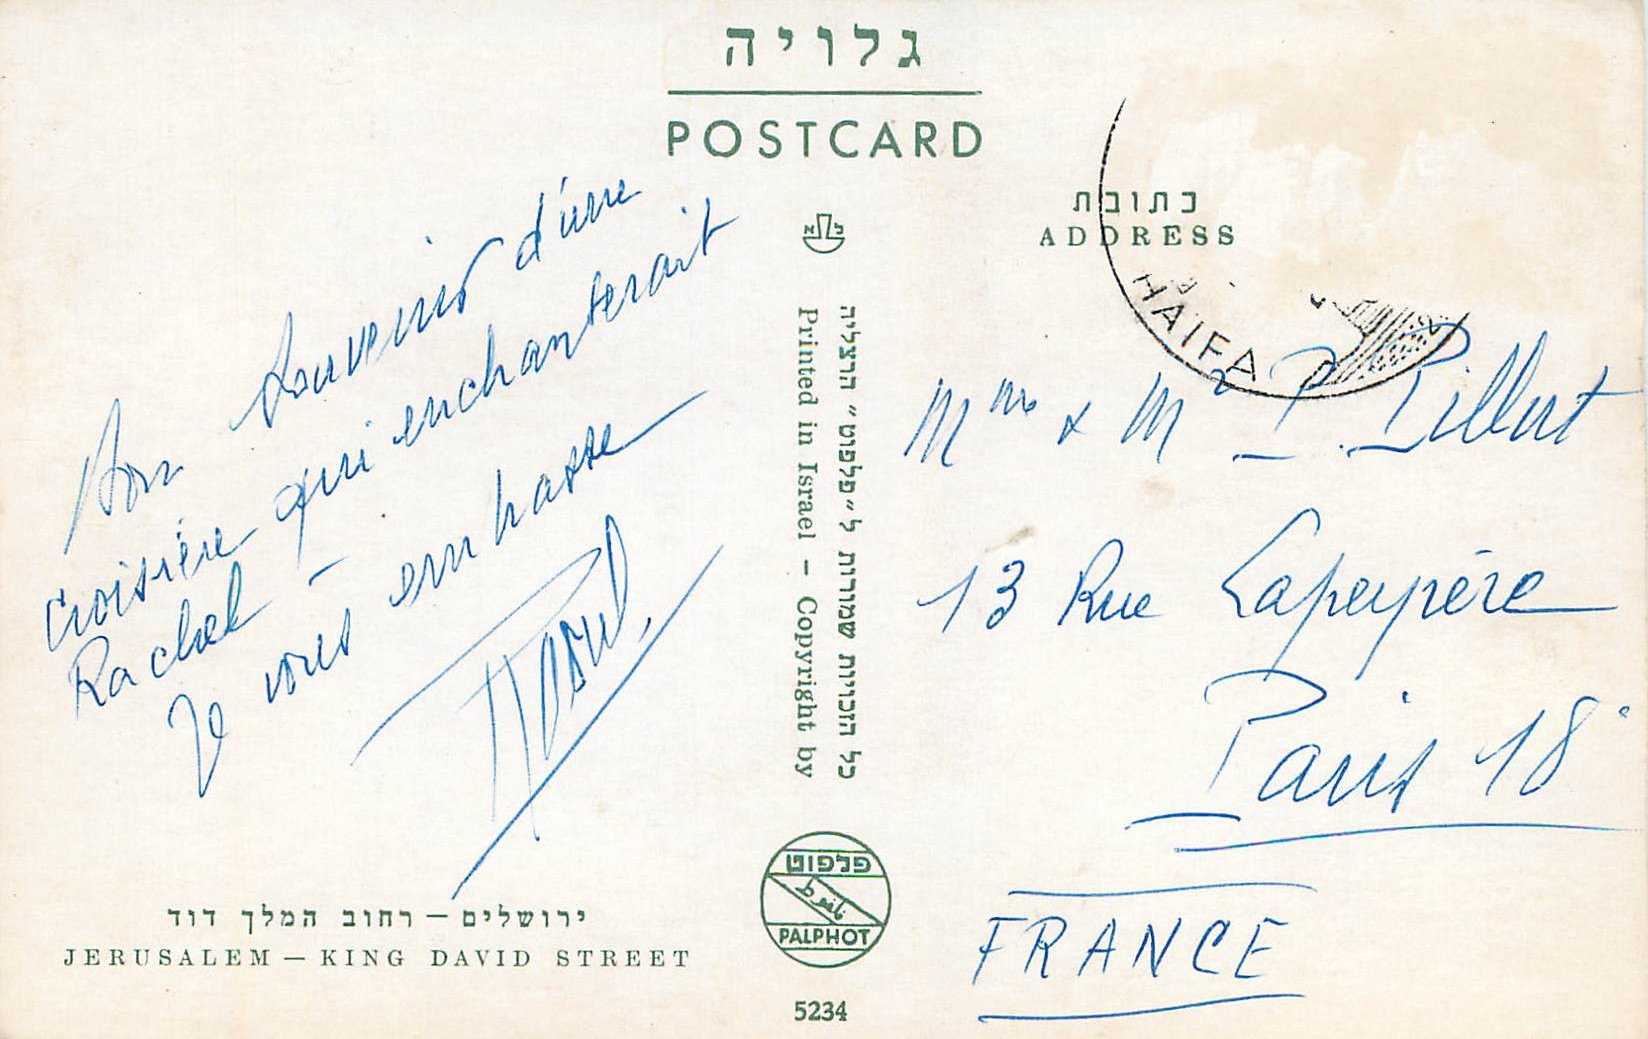 גלויה
POSTCARD
Bon souvenir d'une
croisière qui enchanterait
Rachel –
Je vous embrasse
Raoul.
ירושלים – רחוב המלך דוד
JERUSALEM – KING DAVID STREET
כל הזכויות שמורות ל״פלפוט״ הרצליה
Printed in Israel – Copyright by
פלפוט
PALPHOT
5234
כתובת
ADDRESS
HAIFA
Mme & Mr P. Pillert
13 Rue Lapeyrère
Paris 18e
FRANCE